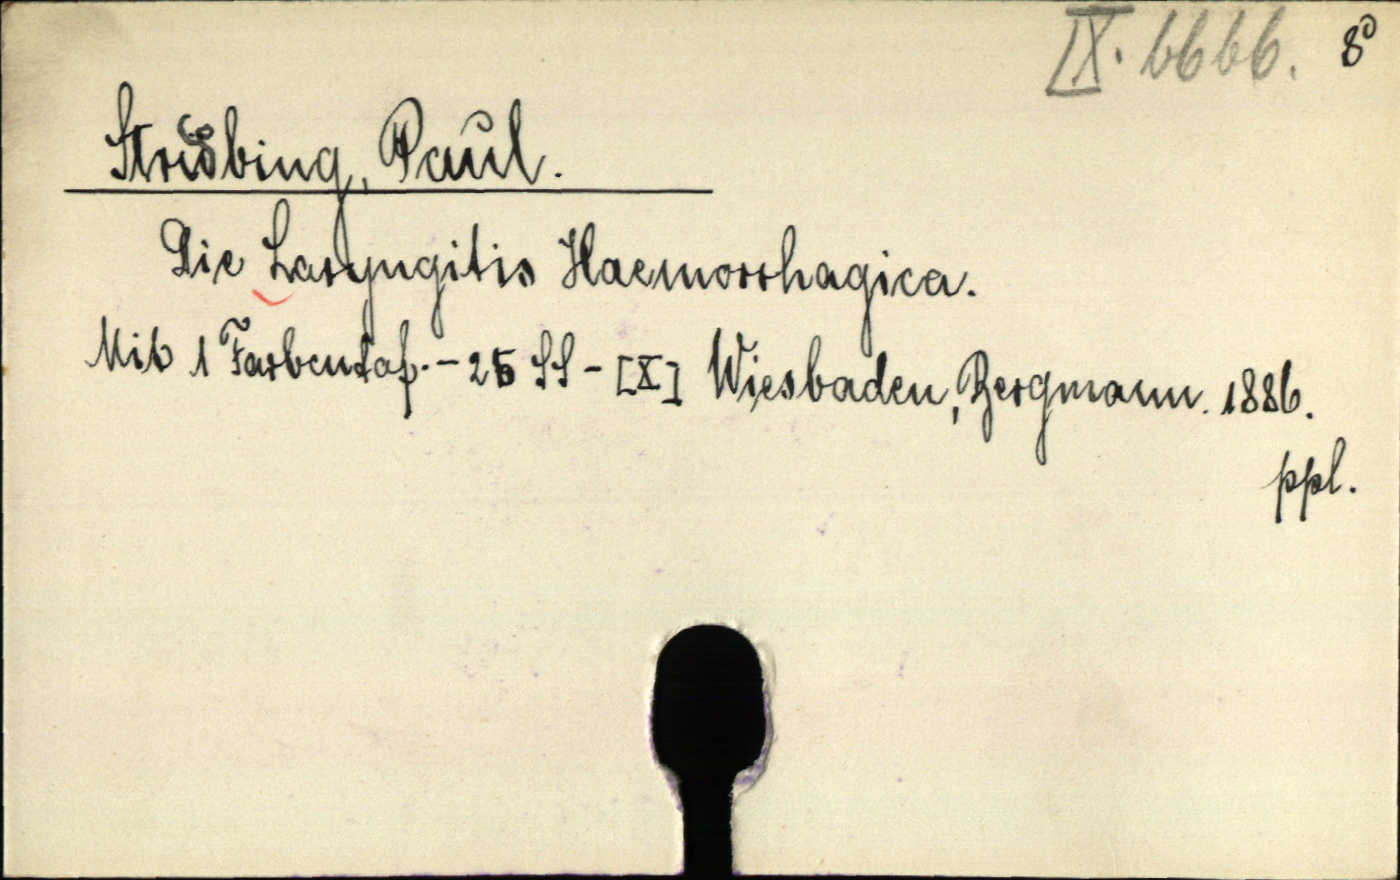 IX. 6666. 8°
Strübing, Paul.
Die Laryngitis Haemorrhagica.
Mit 1 Farbentaf. - 25 SS - [X] Wiesbaden, Bergmann. 1886.
ppl.